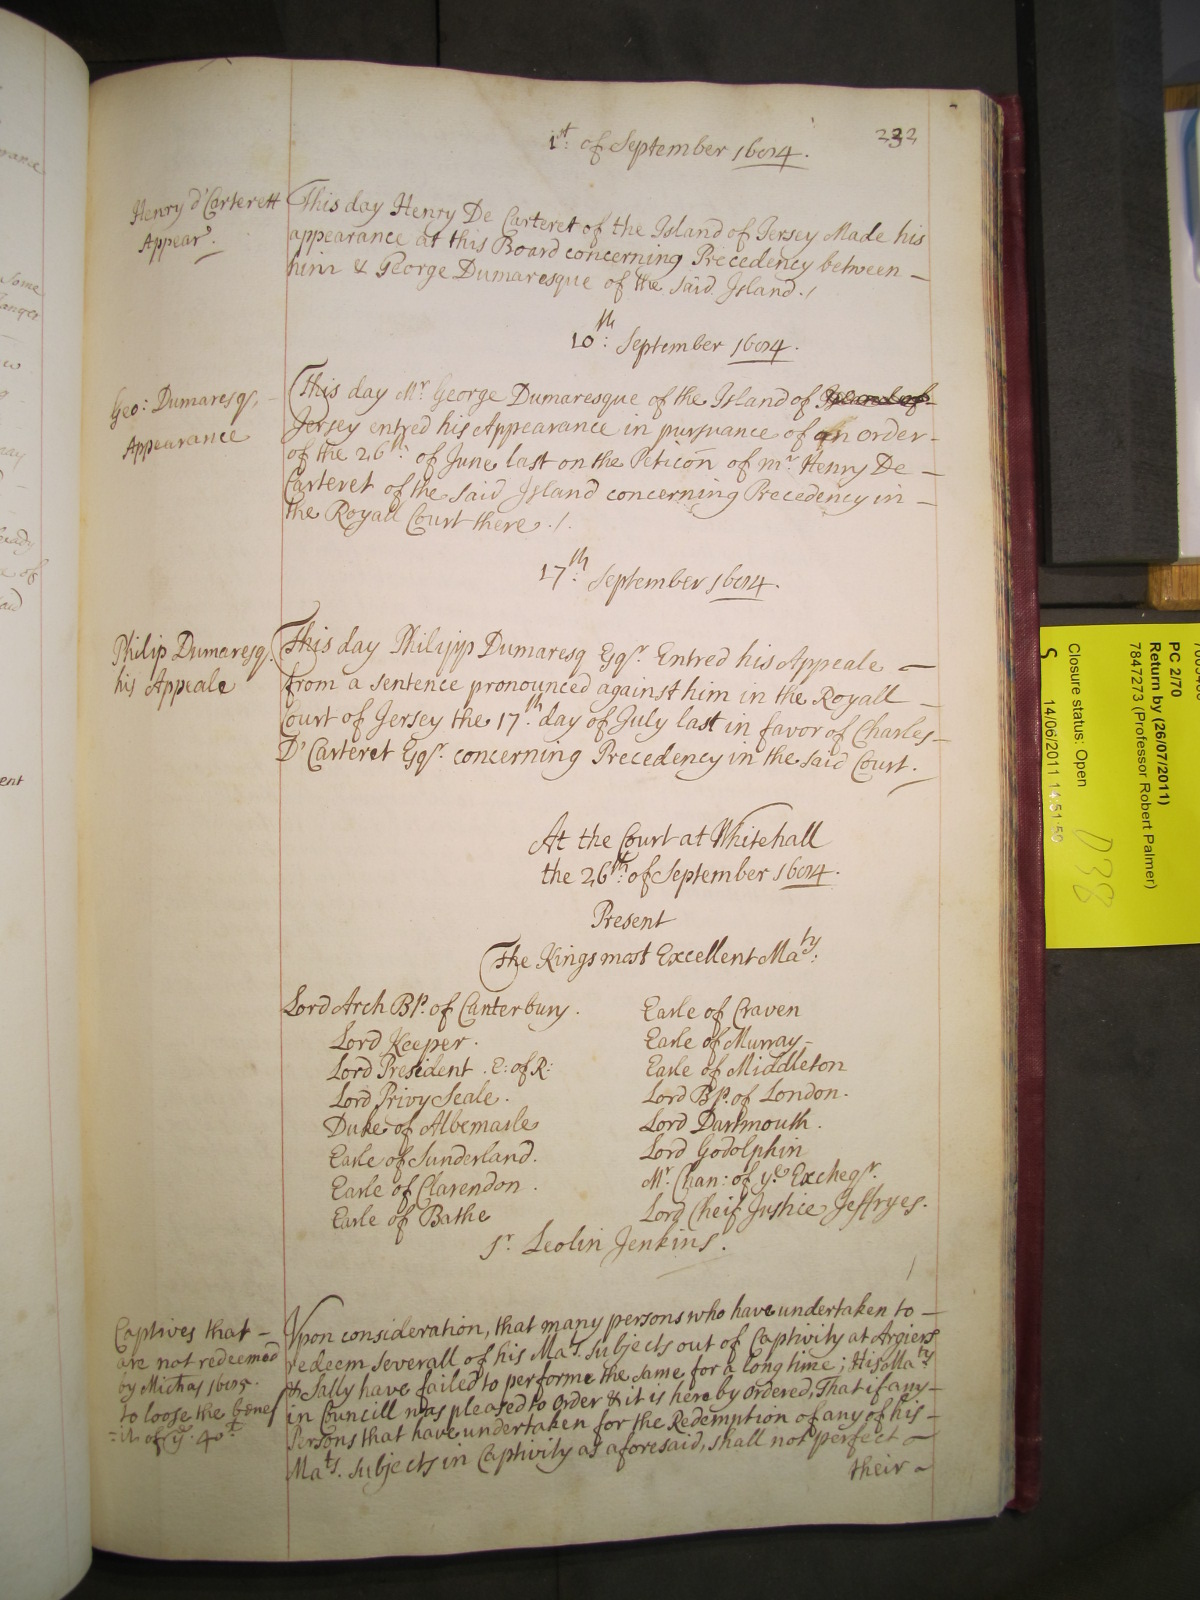 232
1st: of September 1684.
Henry d'Carterett
Appear⁠d.
This day Henry De Carteret of the Island of Jersey Made his
appearance at this Board concerning Precedency between
him & George Dumaresque of the said Island./
10th: September 1684.
Geo: Dumaresq,
Appearance
This day Mr George Dumaresque of the Island of Island of
Jersey entred his Appearance in pursuance of an order
of the 26th: of June last on the Peticõn of mr. Henry De
Carteret of the said Island concerning Precedency in
the Royall Court there ./.
17th: September 1684.
Philip Dumaresq.
his Appeale
This day Philipp Dumaresq Esqr. Entred his Appeale
from a sentence pronounced against him in the Royall
Court of Jersey the 17th. day of July last in favor of Charles
D'Carteret Esqr. concerning Precedency in the said Court.
At the Court at Whitehall
the 26th: of September 1684.
Present
The Kings most Excellent Maty:
Lord Arch Bp. of Canterbury.
Lord Keeper.
Lord President. E: of R:
Lord Privy Seale.
Duke of Albemarle
Earle of Sunderland.
Earle of Clarendon.
Earle of Bathe
Earle of Craven
Earle of Murray
Earle of Middleton
Lord Bp. of London.
Lord Dartmouth.
Lord Godolphin
Mr. Chan: of ye. Excheqr.
Lord Cheif Justice Jeffryes.
Sr. Leolin Jenkins.
Captives that
are not redeemed
by Michas 1685.
to loose the Bene
=it of ye. 40
Upon consideration, that many persons who have undertaken to
redeem severall of his Mats. subjects out of Captivity at Argiers
& Sally have failed to performe the same for a long time; His Maty
in Councill was pleased to order & it is hereby ordered, That if any
Persons that have undertaken for the Redemption of any of his
Mats. subjects in Captivity as aforesaid, shall not perfect
their
PC 2/70
Return by (26/07/2011)
7847273 (Professor Robert Palmer)
Closure status: Open
S 14/06/2011 14:51:50
D38